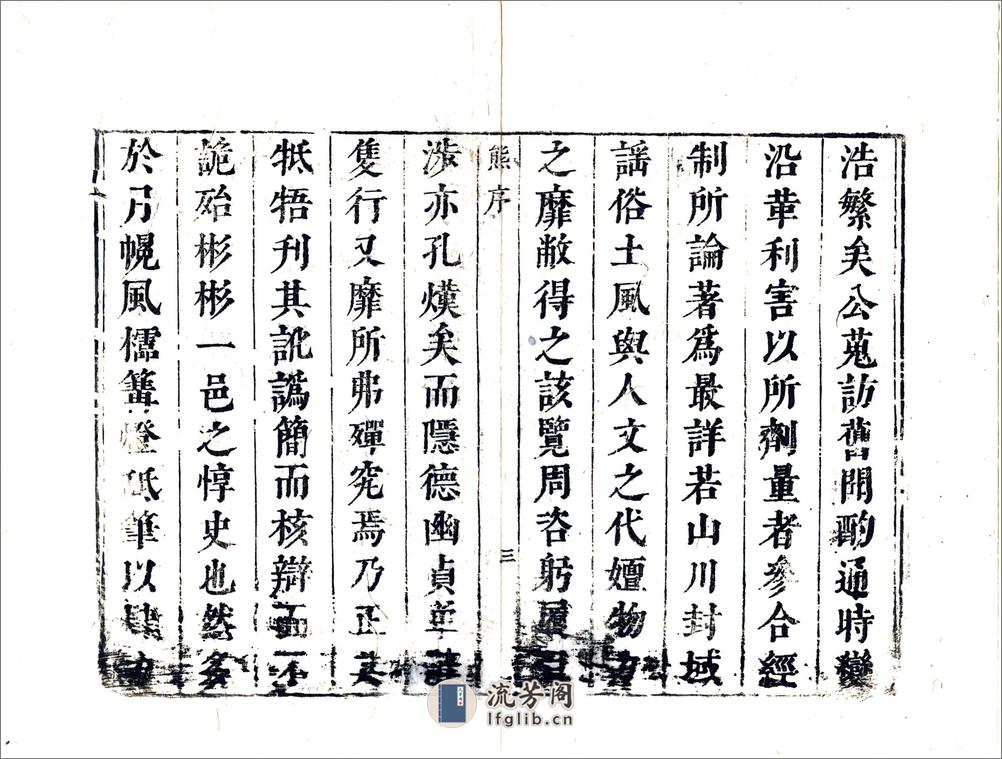 浩繁矣公蒐訪舊聞酌通時變
沿革利害以所劑量者參合經
制所論著爲最詳若山川封域
謡俗土風與人文之代嬗物力
之靡敝得之該覽周咨躬履
熊序
三
涉亦孔熯矣而隱德幽貞
隻行又靡所弗殫究焉乃正
牴牾刋其訛譌簡而核辯而不
詭殆彬彬一邑之惇史也然多
於月幌風檽篝燈泚筆以肆力
流芳阁
lfglib.cn